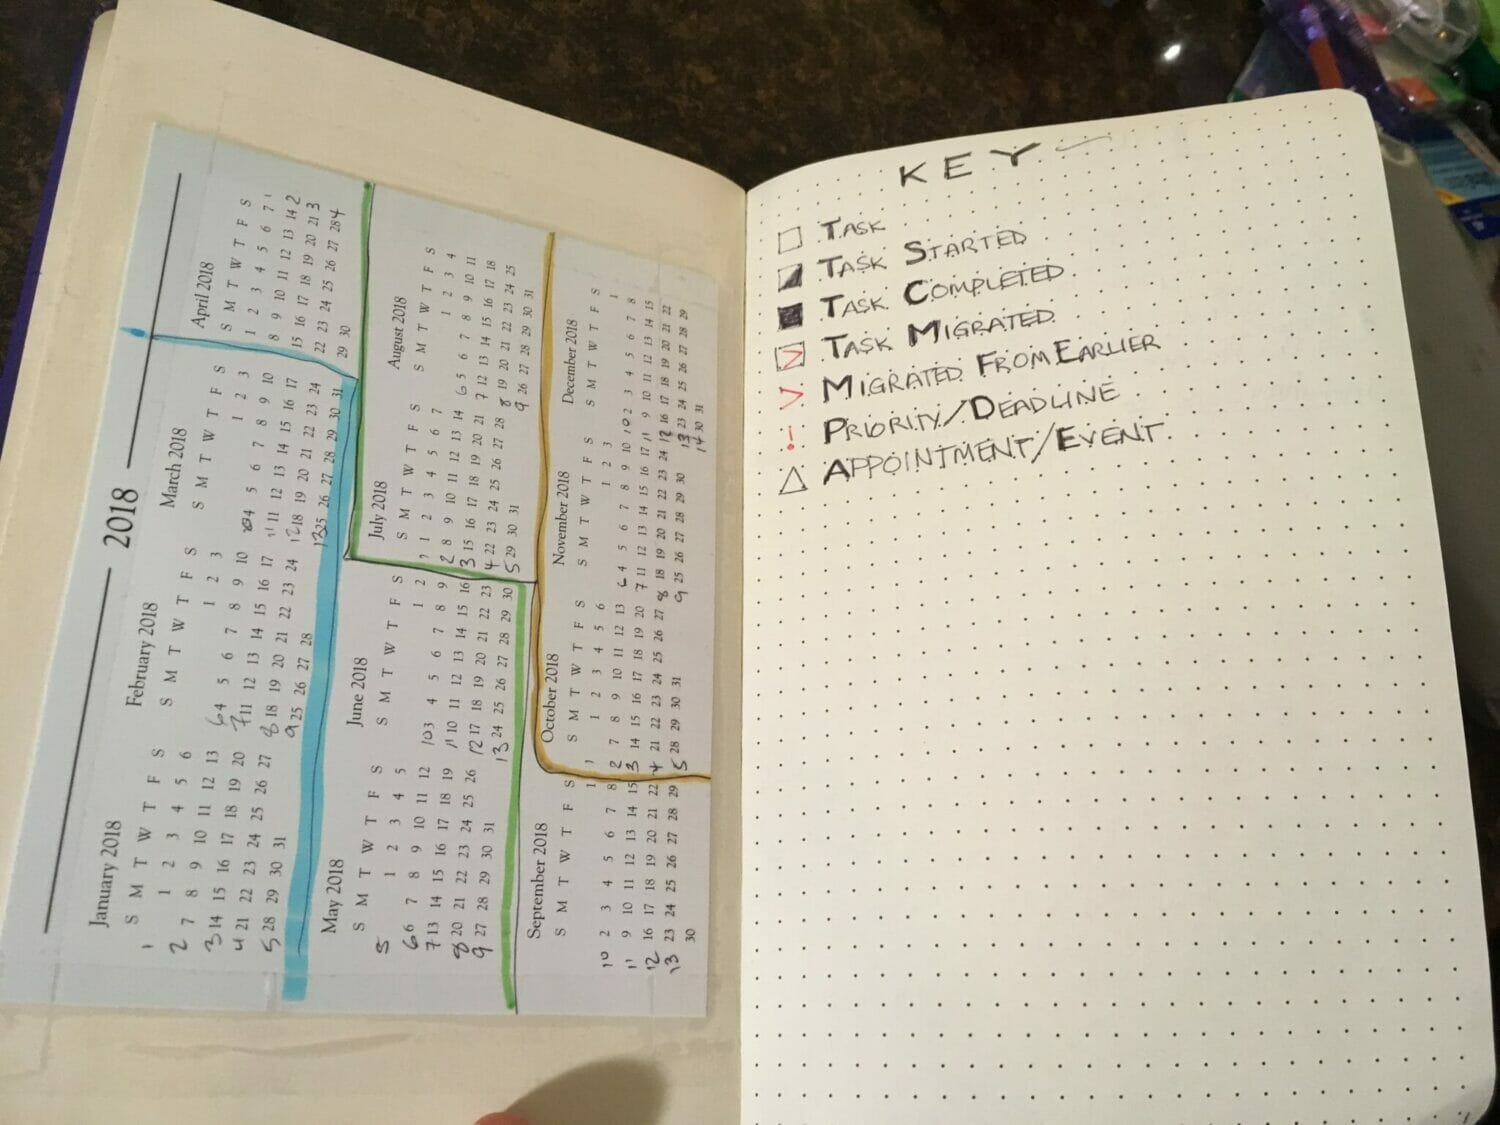 2018
January 2018
S M T W T F S
1 1 2 3 4 5 6
2 7 8 9 10 11 12 13
3 14 15 16 17 18 19 20
4 21 22 23 24 25 26 27
5 28 29 30 31
February 2018
S M T W T F S
1 2 3
6 4 5 6 7 8 9 10
7 11 12 13 14 15 16 17
8 18 19 20 21 22 23 24
9 25 26 27 28
March 2018
S M T W T F S
1 2 3
10 4 5 6 7 8 9 10
11 11 12 13 14 15 16 17
12 18 19 20 21 22 23 24
13 25 26 27 28 29 30 31
April 2018
S M T W T F S
1 2 3 4 5 6 7 1
8 9 10 11 12 13 14 2
15 16 17 18 19 20 21 3
22 23 24 25 26 27 28 4
29 30
May 2018
S M T W T F S
5 1 2 3 4 5
6 6 7 8 9 10 11 12
7 13 14 15 16 17 18 19
8 20 21 22 23 24 25 26
9 27 28 29 30 31
June 2018
S M T W T F S
1 2
10 3 4 5 6 7 8 9
11 10 11 12 13 14 15 16
12 17 18 19 20 21 22 23
13 24 25 26 27 28 29 30
July 2018
S M T W T F S
1 1 2 3 4 5 6 7
2 8 9 10 11 12 13 14
3 15 16 17 18 19 20 21
4 22 23 24 25 26 27 28
5 29 30 31
August 2018
S M T W T F S
1 2 3 4
6 5 6 7 8 9 10 11
7 12 13 14 15 16 17 18
8 19 20 21 22 23 24 25
9 26 27 28 29 30 31
September 2018
S M T W T F S
1
10 2 3 4 5 6 7 8
11 9 10 11 12 13 14 15
12 16 17 18 19 20 21 22
13 23 24 25 26 27 28 29
30
October 2018
S M T W T F S
1 1 2 3 4 5 6
2 7 8 9 10 11 12 13
3 14 15 16 17 18 19 20
4 21 22 23 24 25 26 27
5 28 29 30 31
November 2018
S M T W T F S
1 2 3
6 4 5 6 7 8 9 10
7 11 12 13 14 15 16 17
8 18 19 20 21 22 23 24
9 25 26 27 28 29 30
December 2018
S M T W T F S
1
10 2 3 4 5 6 7 8
11 9 10 11 12 13 14 15
12 16 17 18 19 20 21 22
13 23 24 25 26 27 28 29
14 30 31
KEY
TASK
TASK STARTED
TASK COMPLETED
> TASK MIGRATED
> MIGRATED FROM EARLIER
! PRIORITY/DEADLINE
APPOINTMENT/EVENT